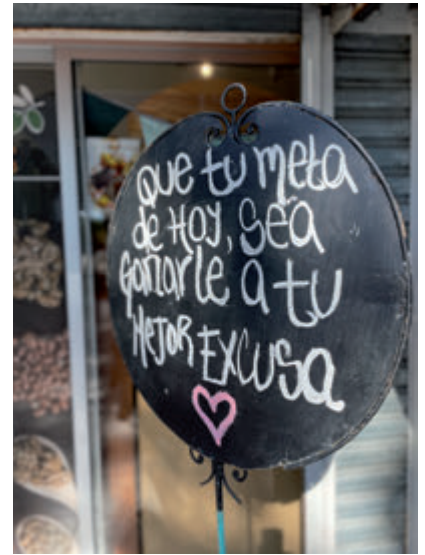 Que tu meta
de HOY, sea
ganarle a tu
MEJOR EXCUSA